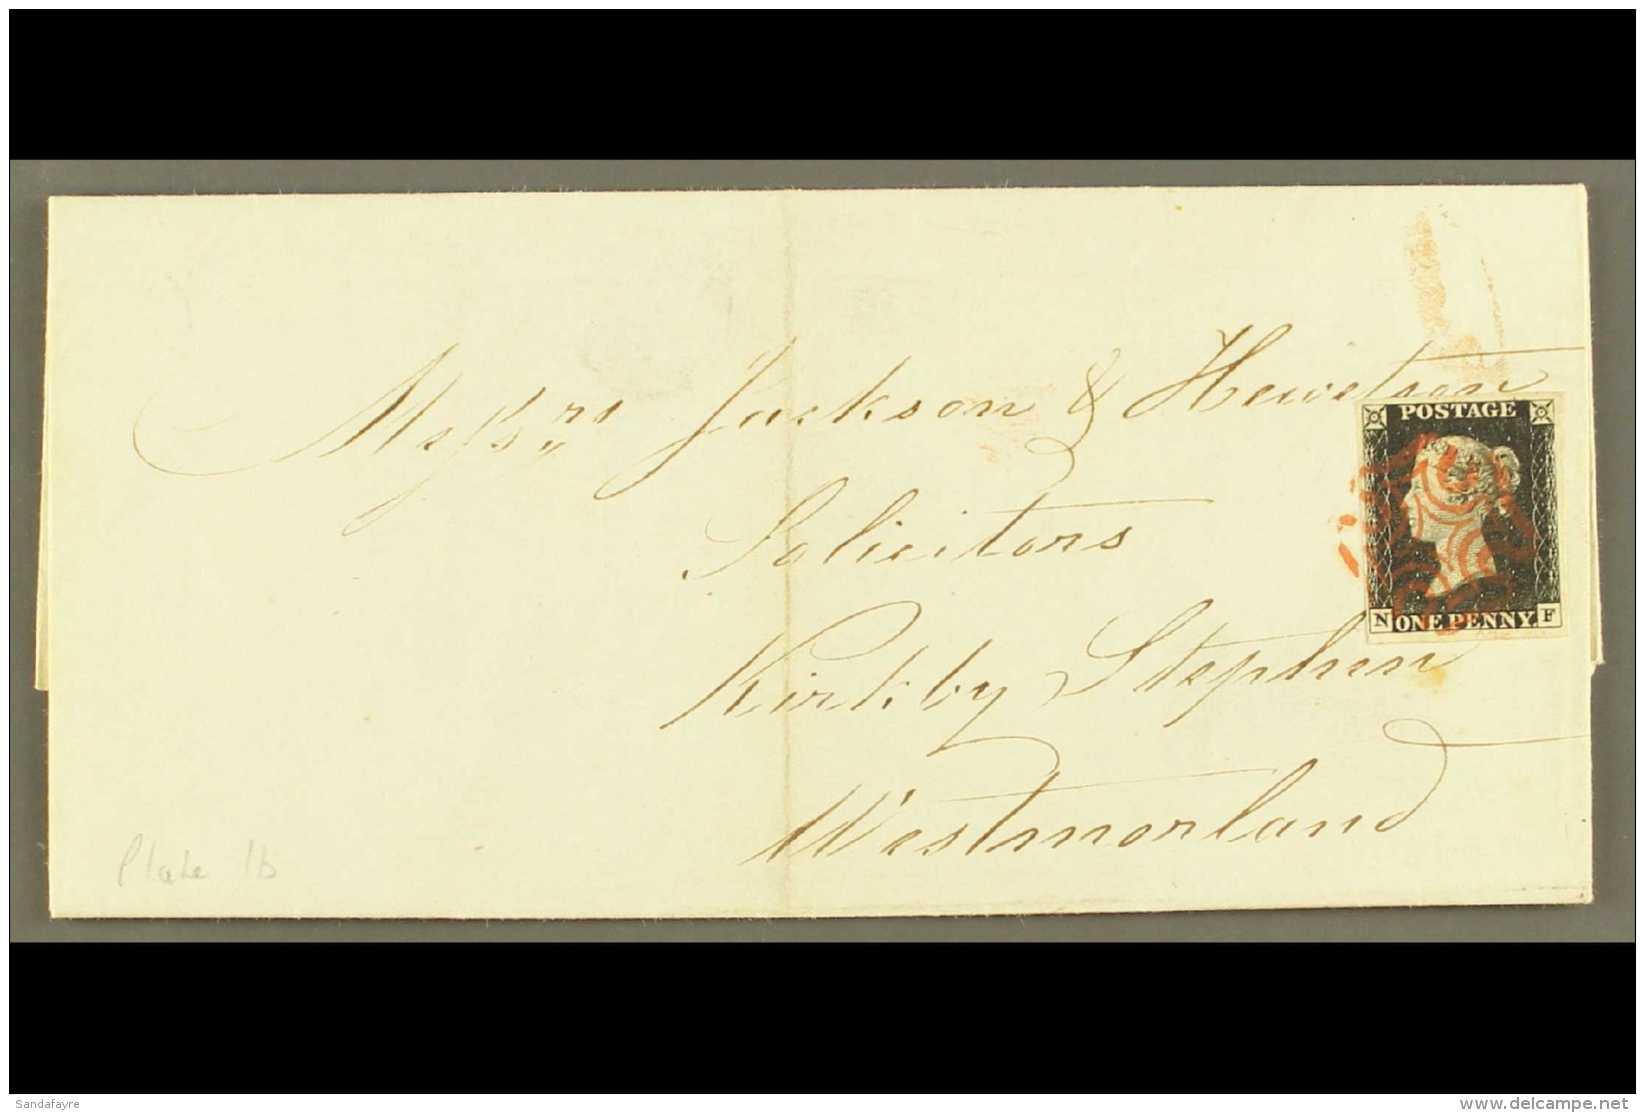 Messrs Jackson & Hewetson
Solicitors
Kirkby Stephen
Westmorland
POSTAGE
N ONE PENNY. F
Plate 1b
Sandafayre
www.delcampe.net